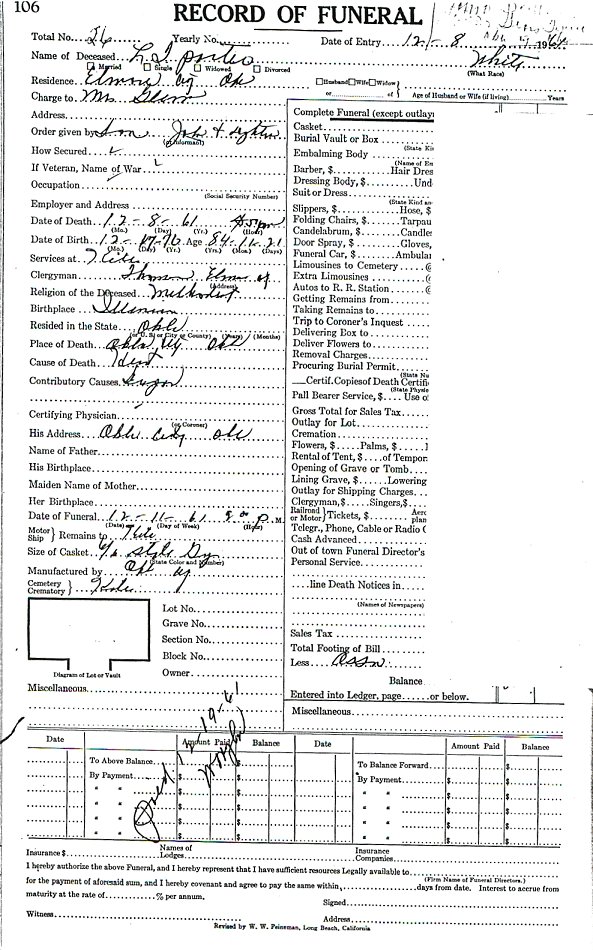 106
RECORD OF FUNERAL
Total No. 26 Yearly No. Date of Entry 12 - 8 1961
Name of Deceased L. D. Porter White
Married Single Widowed Divorced (What Race)
Residence Elmore City Ok Husband Wife Widow
or Age of Husband or Wife (if living) Years
Charge to Mr.
Address
Order given by Son
(or Informant)
How Secured
If Veteran, Name of War
Occupation
(Social Security Number)
Employer and Address
Date of Death 12 - 8 - 61
(Mo.) (Day) (Yr.) (Hour)
Date of Birth 12 - 17 - 76 Age 84 - 11 - 21
(Mo.) (Day) (Yr.) (Yrs.) (Mos.) (Days)
Services at
Clergyman
(Address)
Religion of the Deceased Methodist
Birthplace
Resided in the State Okla
(or U. S.) or City or County) (Years) (Months)
Place of Death Okla City Okl
Cause of Death
Contributory Causes
Certifying Physician
(or Coroner)
His Address Okla City Okl
Name of Father
His Birthplace
Maiden Name of Mother
Her Birthplace
Date of Funeral 12 - 11 - 61 P. M.
(Date) (Day of Week) (Hour)
Motor Ship Remains to
Size of Casket 6/6 Style
(State Color and Number)
Manufactured by Ok Cy
Cemetery Crematory
Diagram of Lot or Vault
Lot No.
Grave No.
Section No.
Block No.
Owner
Miscellaneous
Complete Funeral (except outlays
Casket
Burial Vault or Box
(State Ki
Embalming Body
(Name of Em
Barber, $ Hair Dres
Dressing Body, $ Und
Suit or Dress
(State Kind an
Slippers, $ Hose, $
Folding Chairs, $ Tarpau
Candelabrum, $ Candle
Door Spray, $ Gloves,
Funeral Car, $ Ambula
Limousines to Cemetery @
Extra Limousines @
Autos to R. R. Station @
Getting Remains from
Taking Remains to
Trip to Coroner's Inquest
Delivering Box to
Deliver Flowers to
Removal Charges
Procuring Burial Permit
(State Nu
Certif. Copies of Death Certifi
(State Physic
Pall Bearer Service, $ Use of
Gross Total for Sales Tax
Outlay for Lot
Cremation
Flowers, $ Palms, $
Rental of Tent, $ of Tempor
Opening of Grave or Tomb
Lining Grave, $ Lowering
Outlay for Shipping Charges
Clergyman, $ Singers, $
Railroad or Motor Tickets, $ Aero plan
Telegr., Phone, Cable or Radio C
Cash Advanced
Out of town Funeral Director's
Personal Service
line Death Notices in
(Names of Newspapers)
Sales Tax
Total Footing of Bill
Less Assn
Balance
Entered into Ledger, page or below.
Miscellaneous
12-19-61
Date Amount Paid Balance Date Amount Paid Balance
To Above Balance $ $ To Balance Forward $ $
By Payment $ $ By Payment $ $
" " $ $ " " $ $
" " $ $ " " $ $
" " $ $ " " $ $
" " $ $ " " $ $
Insurance $ Names of Lodges Insurance Companies
I hereby authorize the above Funeral, and I hereby represent that I have sufficient resources Legally available to
(Firm Name of Funeral Directors.)
for the payment of aforesaid sum, and I hereby covenant and agree to pay the same within, days from date. Interest to accrue from
maturity at the rate of % per annum.
Signed
Witness Address
Revised by W. W. Feinsman, Long Beach, California